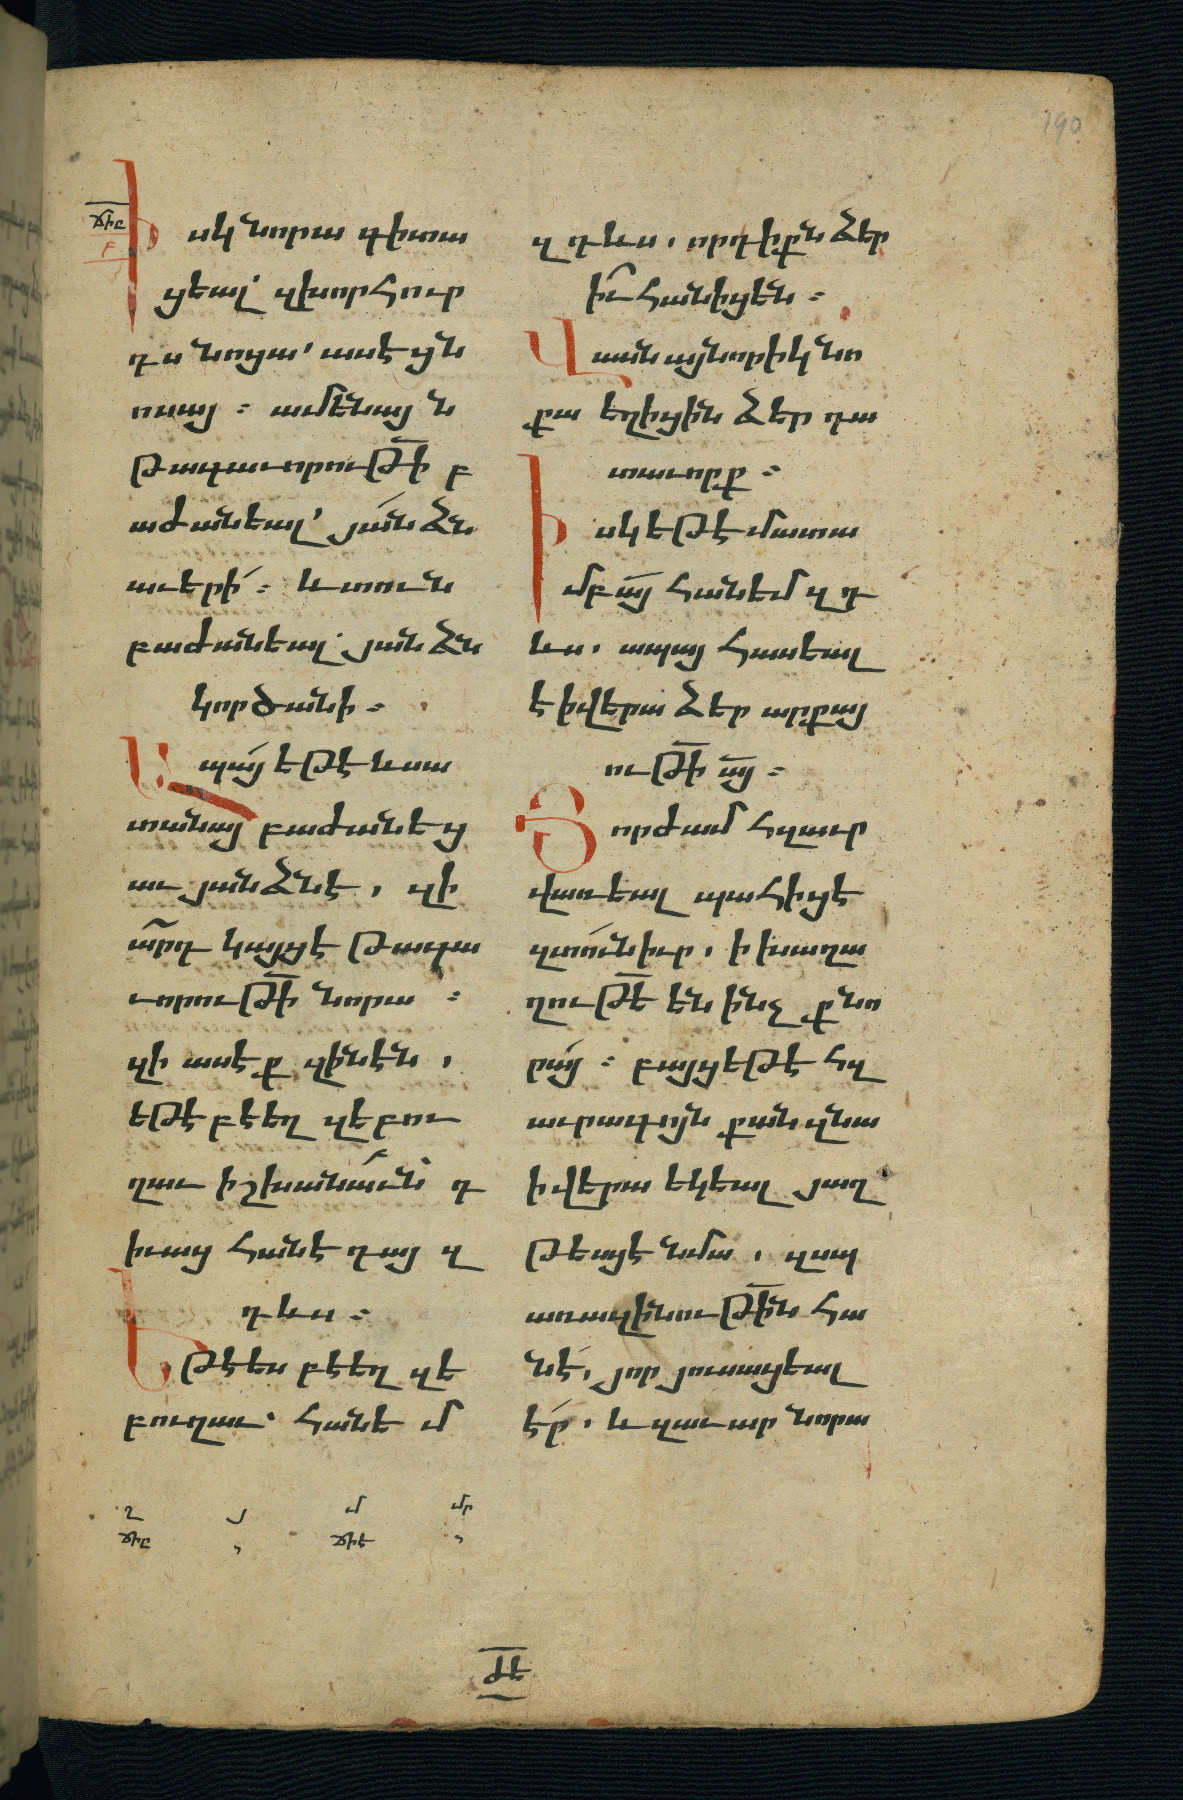 190
ՃԻԸ
Բ
Իսկ նորա գիտա
ցեալ՝ զխորհուր
դս նոցա՝ ասէ ցն
ոսայ ։ ամենայն
թագաւորութի բ
աժանեալ՝ յանձն
աւերի ։ և տուն
բաժանեալ՝ յանձն
կործանի ։
Ապայ եթէ և սա
տանայ բաժանեց
աւ յանձնէ , զի
արդ կայցէ թագա
ւորութի նորա ։
զի ասէք զինէն ,
եթէ բէեղզէբու
ղաւ իշխանաւն դ
իւաց հանէ դայ զ
դևս ։
Եթէ ես բէեղզէ
բուղաւ՝ հանեմ
զդևս , որդիքն ձեր
իւ հանիցեն ։
Վասն այնորիկ նո
քա եղիցին ձեր դա
տաւորք ։
Իսկ եթէ մատա
մբ այ հանեմ զդ
ևս , ապայ հասեալ
է ի վերա ձեր արքայ
ութի այ ։
Յորժամ հզաւր
վառեալ պահիցէ
զտունիւր , ի խաղա
ղութե են ինչ քնո
րայ ։ բայց եթէ հզ
աւրագոյն քան զնա
ի վերա եկեալ յաղ
թեսցէ նմա , զսպ
առազինութին հա
նէ , յոր յուսացեալ
էր , և զաւար նորա
Ղ Յ Մ ՄՐ
ՃԻԸ , ՃԻԷ ,
ԺԷ